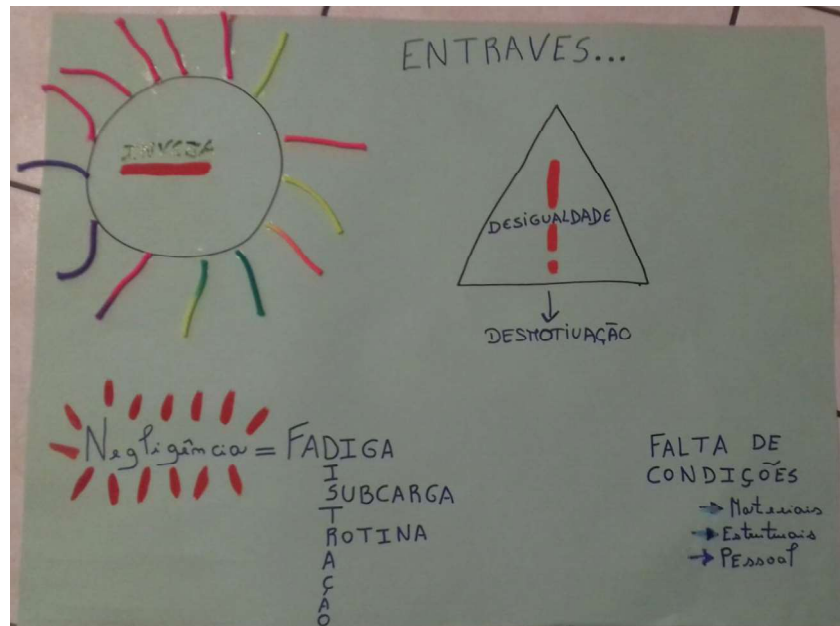 ENTRAVES...
INVEJA
DESIGUALDADE
DESMOTIVAÇÃO
Negligência = FADIGA
I
SUBCARGA
T
ROTINA
A
Ç
Ã
O
FALTA DE
CONDIÇÕES
→ Materiais
→ Estruturais
→ PESsoal